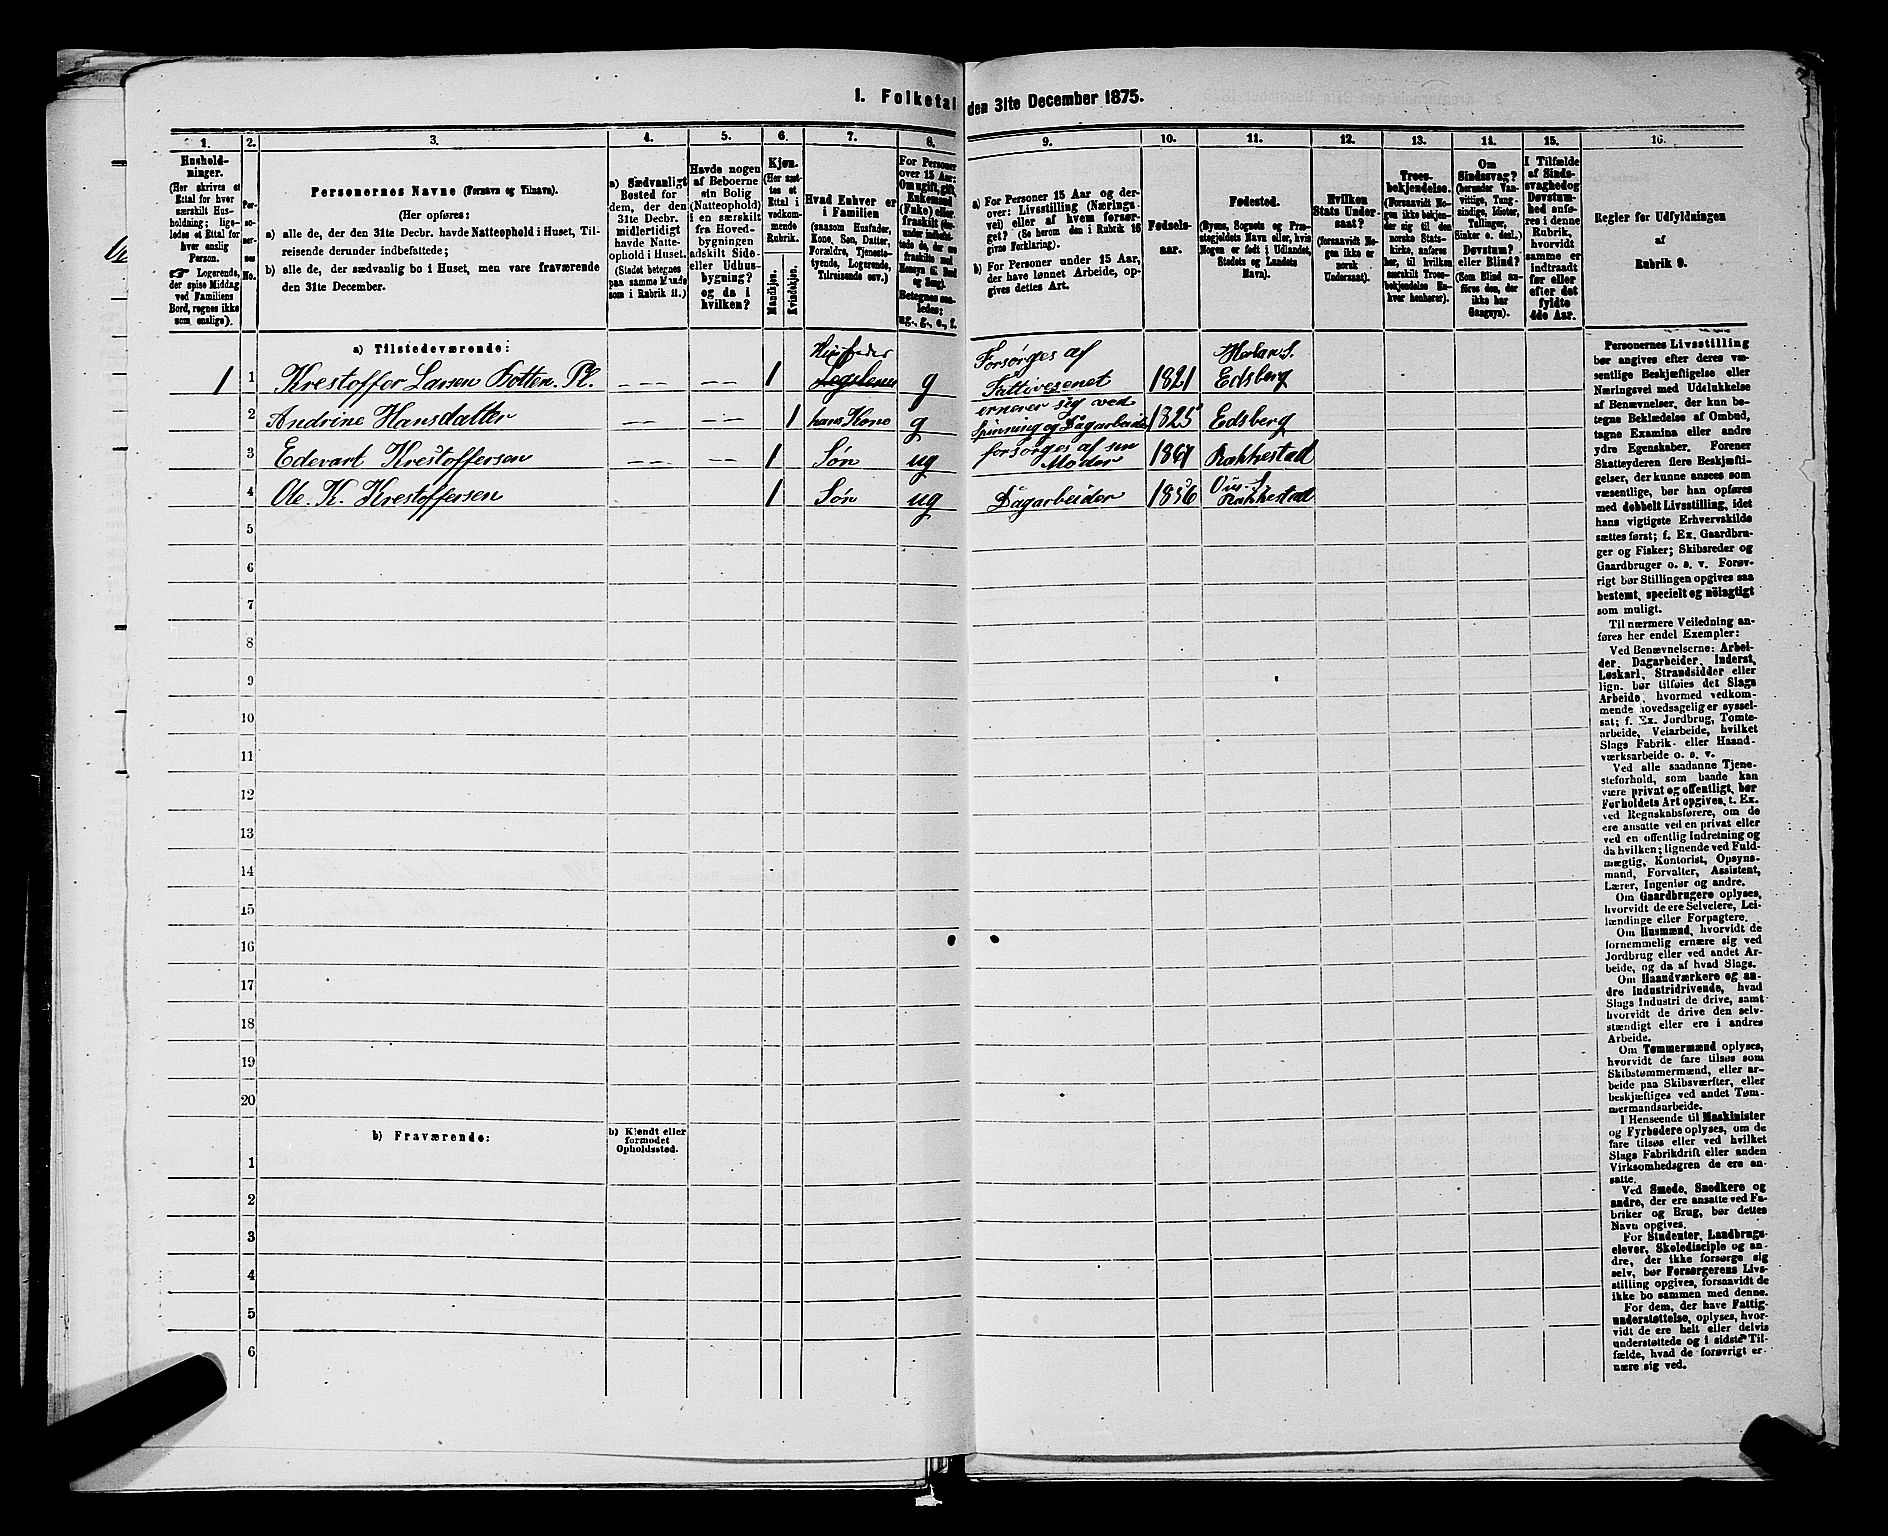 1. Folketal den 31te December 1875.
1.
2.
3.
4.
5.
6.
7.
8.
9.
10.
11.
12.
13.
14.
15.
16.
Hushold-
ninger.
(Her skrives et
Ettal for hver
særskilt Hus-
holdning; lige-
ledes et Ettal for
hver enslig
Person.
☞ Logerende,
der spise Middag
ved Familiens
Bord, regnes ikke
som enslige).
Per-
so-
ner-
nes
No.
Personernes Navne (Fornavn og Tilnavn).
(Her opføres:
a) alle de, der den 31te Decbr. havde Natteophold i Huset, Til-
reisende derunder indbefattede;
b) alle de, der sædvanlig bo i Huset, men vare fraværende
den 31te December.
a) Sædvanligt
Bosted for
dem, der den
31te Decbr.
midlertidigt
havde Natte-
ophold i Huset.
(Stedet betegnes
paa samme Maade
som i Rubrik 11.)
Havde nogen
af Beboerne
sin Bolig
(Natteophold)
i en særskilt
fra Hoved-
bygningen
adskilt Side-
eller Udhus-
bygning?
og da i
hvilken?
Kjøn.
(Her sæt-
tes et
Ettal i
vedkom-
mende
Rubrik.
Mandkjøn.
Kvindekjøn.
Hvad Enhver er
i Familien
(saasom Husfader,
Kone, Søn, Datter,
Forældre, Tjeneste-
tyende, Logerende,
Tilreisende osv.)
For Personer
over 15 Aar:
Om ugift, gift,
Enkemand
(Enke) eller
fraskilt (der-
under indbefat-
tede de, der ere
fraskilte med
Hensyn til Bord
og Seng).
Betegnes saa-
ledes:
ug., g., e., f.
a) For Personer 15 Aar og der-
over: Livsstilling (Nærings-
vei) eller af hvem forsør-
get? (Se herom den i Rubrik 16
givne Forklaring).
b) For Personer under 15 Aar,
der have lønnet Arbeide, op-
gives dettes Art.
Fødsels-
aar.
Fødested.
(Byens, Sognets og Præ-
stegjeldets Navn eller, hvis
Nogen er født i Udlandet,
Stedets og Landets
Navn).
Hvilken
Stats Under-
saat?
(forsaavidt No-
gen ikke er
norsk
Undersaat).
Troes-
bekjendelse.
(Forsaavidt No-
gen ikke bekjen-
der sig til den
norske Stats-
kirke, anføres
her, til hvilken
særskilt Troes-
bekjendelse En-
hver henhører).
Om
Sindssvag?
(herunder Van-
vittige, Tung-
sindige, Idioter,
Tullinger,
Sinker o. desl.)
Døvstum?
eller Blind?
(Som Blind an-
føres den, der
ikke har
Gangsyn).
I Tilfælde
af Sinds-
svaghed og
Døvstum-
hed anfø-
res i denne
Rubrik,
hvorvidt
samme er
indtraadt
før eller
efter det
fyldte
4de Aar.
Regler for Udfyldningen
af
Rubrik 9.
a) Tilstedeværende:
1 1 Krestoffer Larsen Botten. Pl. 1 Husfader g Forsørges af Fattivesenet 1821 Edsberg
2 Andrine Hansdatter 1 hans Kone g ernerer sig ved Spinning og Dagarbeide 1825 Edsberg
3 Edevart Krestoffersen 1 Søn ug forsørges af sin Moder 1861 Rakkestad
4 Ole. K. Krestoffersen 1 Søn ug Dagarbeider 1856 Rakkestad
5
6
7
8
9
10
11
12
13
14
15
16
17
18
19
20
b) Fraværende:
b) Kjendt eller
formodet
Opholdssted.
1
2
3
4
5
6
Personernes Livsstilling
bør angives efter deres væ-
sentlige Beskjæftigelse eller
Næringsvei med Udelukkelse
af Benævnelser, der kun be-
tegne Beklædelse af Ombud,
tagne Examina eller andre
ydre Egenskaber. Forener
Skatteyderen flere Beskjæfti-
gelser, der kunne ansees som
væsentlige, bør han opføres
med dobbelt Livsstilling, idet
hans vigtigste Erhvervskilde
sættes først; f. Ex. Gaardbru-
ger og Fisker; Skibsreder og
Gaardbruger o. s. v. Forøv-
rigt bør Stillingen opgives saa
bestemt, specielt og nöiagtigt
som muligt.
Til nærmere Veiledning an-
føres her endel Exempler:
Ved Benævnelserne: Arbei-
der, Dagarbeider, Inderst,
Løskarl, Strandsidder eller
lign. bør tilføies det Slags
Arbeide, hvormed vedkom-
mende hovedsagelig er syssel-
sat; f. Ex. Jordbrug, Tomte-
arbeide, Veiarbeide, hvilket
Slags Fabrik- eller Haand-
værksarbeide o. s. v.
Ved alle saadanne Tjene-
steforhold, som baade kan
være privat og offentligt, bør
Forholdets Art opgives, t. Ex.
ved Regnskabsførere, om de
ere ansatte ved en privat eller
ved en offentlig Indretning og
da hvilken; lignende ved Fuld-
mægtig, Kontorist, Opsyns-
mand, Forvalter, Assistent,
Lærer, Ingeniør og andre.
Om Gaardbrugere oplyses,
hvorvidt de ere Selveiere, Lei-
lændinge eller Forpagtere.
Om Husmænd, hvorvidt de
fornemmelig ernære sig ved
Jordbrug eller ved andet Ar-
beide, og da af hvad Slags.
Om Haandværkere og an-
dre Industridrivende, hvad
Slags Industri de drive, samt
hvorvidt de drive den selv-
stændigt eller ere i andres
Arbeide.
Om Tømmermænd oplyses,
hvorvidt de fare tilsøs som
Skibstømmermænd, eller ar-
beide paa Skibsværfter, eller
beskjæftiges ved andet Tøm-
mermandsarbeide.
I Henseende til Maskinister
og Fyrbødere oplyses, om de
fare tilsøs eller ved hvilket
Slags Fabrikdrift eller anden
Virksomhedsgren de ere an-
satte.
Ved Smede, Snedkere og
andre, der ere ansatte ved Fa-
briker og Brug, bør dettes
Navn opgives.
For Studenter, Landbrugs-
elever, Skoledisciple og an-
dre, der ikke forsørge sig
selv, bør Forsørgerens Livs-
stilling opgives, forsaavidt de
ikke bo sammen med denne.
For dem, der have Fattig-
understøttelse, oplyses, hvor-
vidt de ere helt eller delvis
understøttede og i sidste Til-
fælde, hvad de forøvrigt er-
nære sig ved.